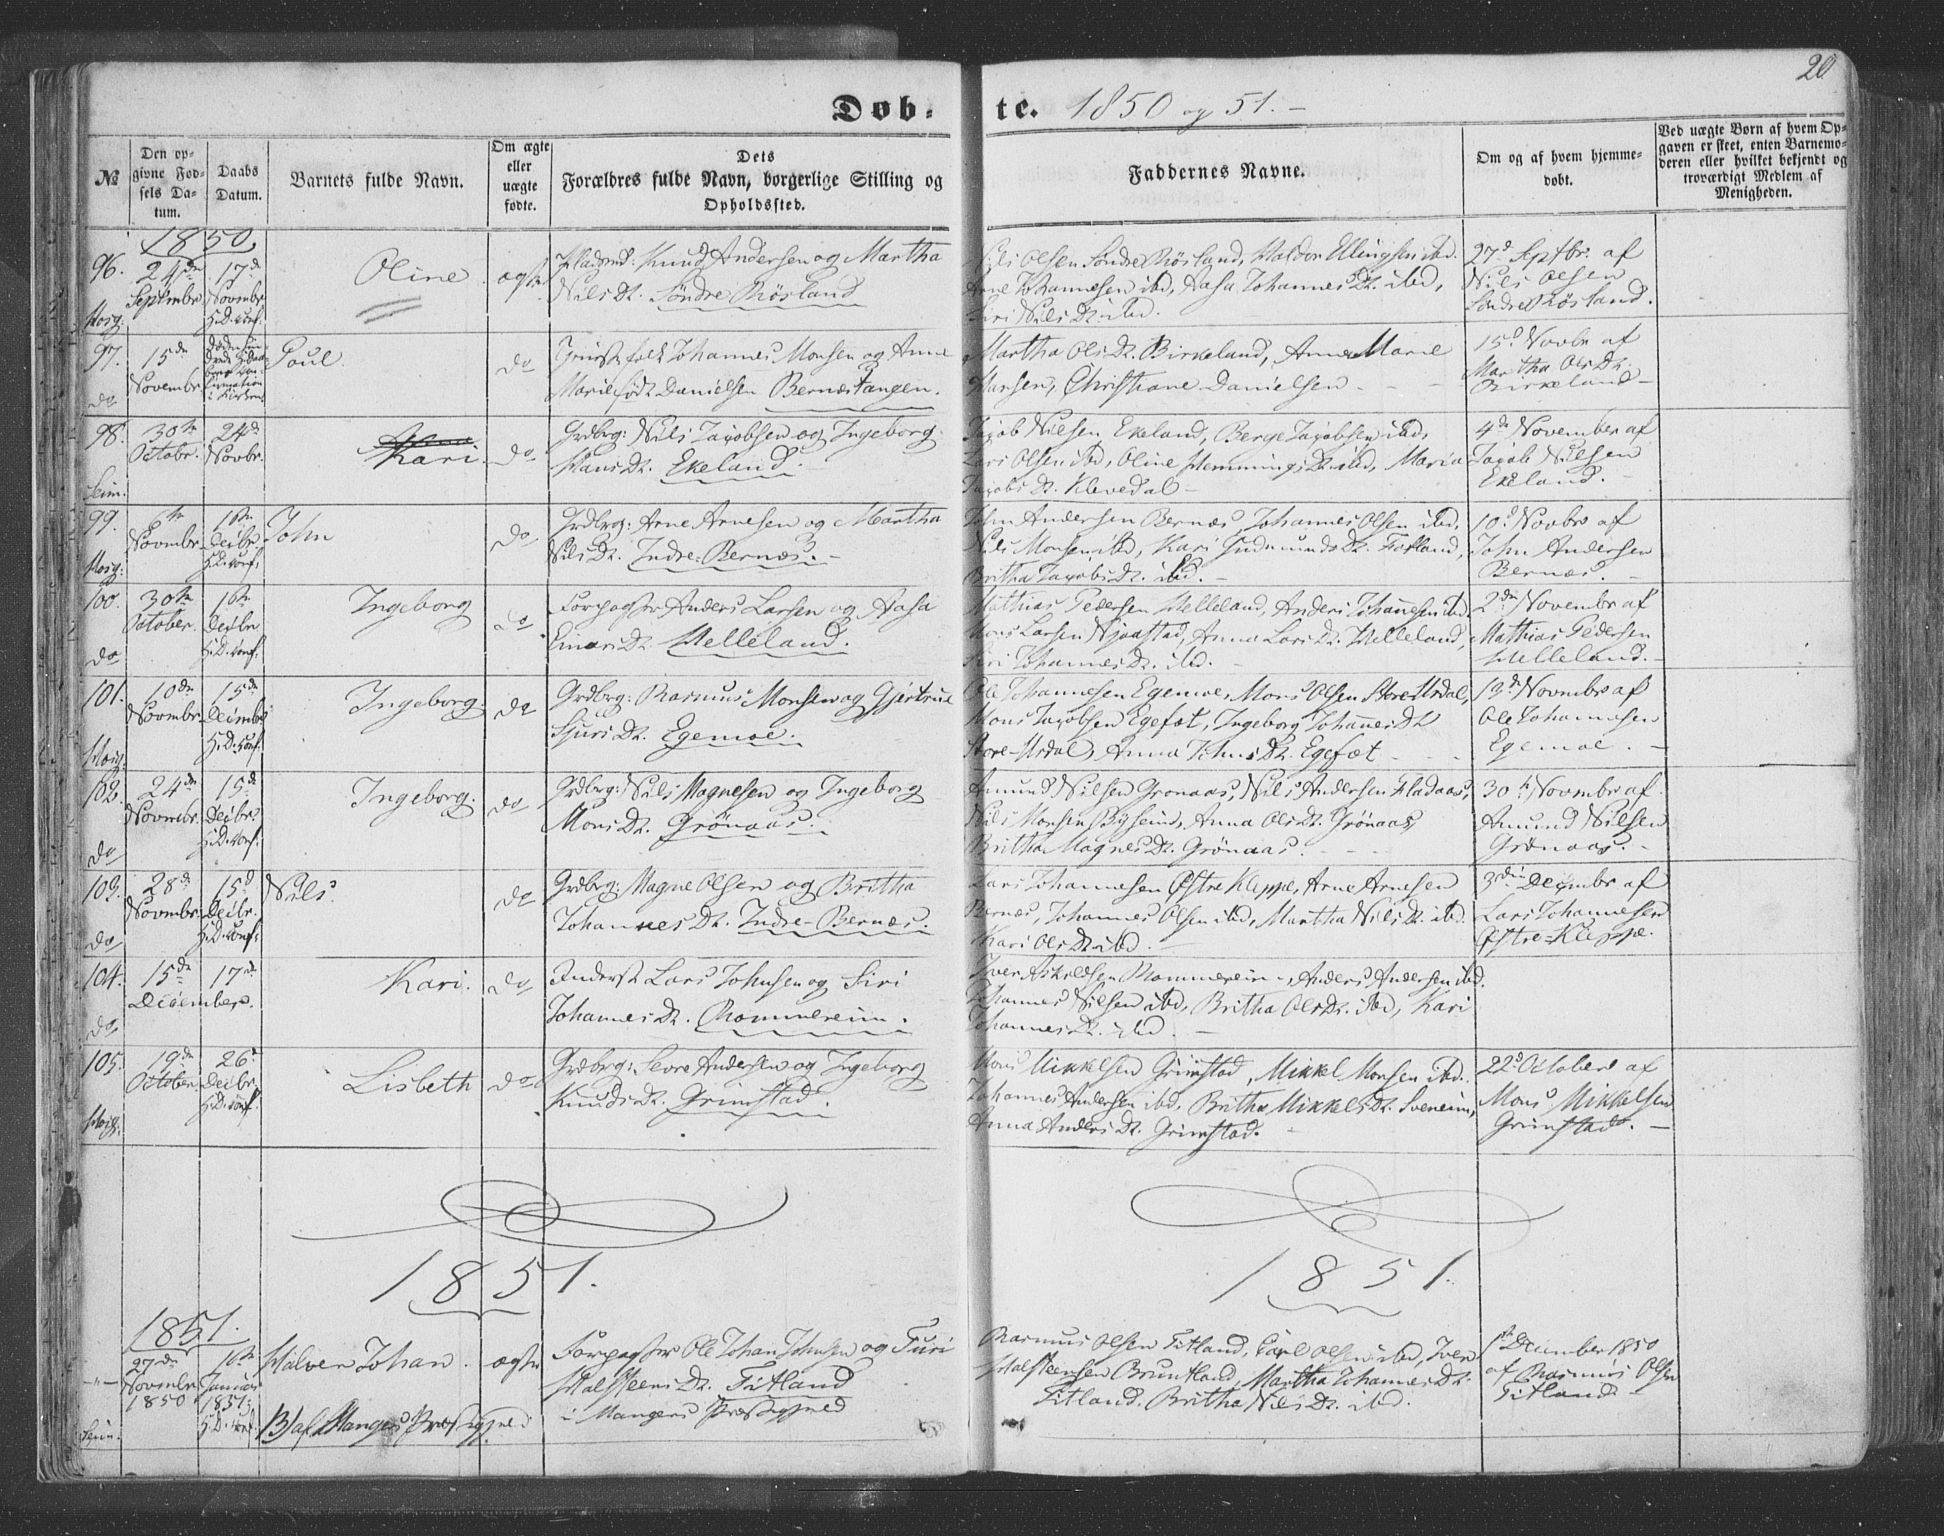 20
Døb- te. 1850 og 51. -
№
Den op-
givne Fød-
sels Da-
tum.
Daabs
Datum.
Barnets fulde Navn.
Om ægte
eller
uægte
fødte.
Dets
Forældres fulde Navn, borgerlige Stilling og
Opholdssted.
Faddernes Navne.
Om og af hvem hjemme-
døbt.
Ved uægte Børn af hvem Op-
gaven er skeet, enten Barnemo-
deren eller hvilket bekjendt og
troværdigt Medlem af
Menigheden.
1850
96. 24de Septembr 17de Novembr H.D. conf.
Oline ægte
Pladsmd: Knud Andersen og Martha
Nils Dt. Søndre Røsland
Nils Olsen Søndre Røsland, Haldor Ellingsen ibd.
Arne Johannesen ibd, Aasa Johannes Dt. ibd,
Siri Nils Dt. ibd.
27d Septbr. af
Nils Olsen
Søndre Røsland.
97. 15de Novembr
Poul. do
Johannes Monsen og Anne
Marie født Danielsen Bernæstangen.
Martha Ols Dt. Birkeland, Anne Marie
Hansen, Christiane Danielsen - - -
15d Novbr af
Martha Ols Dt.
Birkeland -
do
98. 30te Octobr. 24de Novbr.
Kari. do
Grdbrg: Nils Jacobsen og Ingeborg
Hans Dt. Ekeland.
Jacob Nilsen Ekeland, Berge Jacobsen ibd,
Lars Olsen ibd, Oline Hemmings Dt. ibd, Maria
Jacobs Dt. Klevedal -
4de November af
Jacob Nilsen
Ekeland. -
Seim.
99. Novembr 1ste Decbr H.D. conf.
John do
Grdbrg: Arne Arnesen og Martha
Nils Dt. Indre-Bernæs. -
John Andersen Bernæs, Johannes Olsen ibd,
Nils Monsen ibd, Kari Gudmunds Dt. Fosland,
Britha Jacobs Dt. ibd. -
10d Novbr af
John Andersen
Bernæs. -
100. 30te October. 1ste Decbr H.D. conf.
Ingeborg do
Forpagter Anders Larsen og Aasa
Einars Dt. Helleland.
Mathias Pedersen Helleland, Anders Johannesen ibd.
Mons Larsen Njaastad, Anna Lars Dt. Helleland,
Siri Johannes Dt. ibd. -
2den Novembr af
Mathias Pedersen
Helleland. -
do
101. 10de Novmbr. 15de Decmbr H.D. conf.
Ingeborg. do
Grdbrg: Rasmus Monsen og Gjertrue
Sjurs Dt. Egemoe.
Ole Johannesen Egemoe, Mons Olsen Store Urdal,
Mons Jacobsen Egefæt, Ingeborg Johannes Dt
Store-Urdal, Anna Johns Dt. Egefæt - - -
13de Novmbr af
Ole Johannesen
Egemoe. -
102. 24de Novmbr. 15de Decbr. H.D. conf.
Ingeborg. do
Grdbrg: Nils Magnesen og Ingeborg
Mons Dt. Grønaas.
Amund Nilsen Grønaas, Nils Andersen Fladaas,
Nils Monsen Bysem, Anna Ols Dt. Grønaas,
Britha Magnes Dt. Grønaas. - - -
30te Novmbr af
Amund Nilsen
Grønaas. -
do
103. 28d Novembr. 15d Decbr. H.D. conf.
Nils. do
Grdbrg: Magne Olsen og Britha
Johannes Dt. Indre-Bernæs.
Lars Johannesen Østre Kleppe, Arne Arnesen
Bernæs, Johannes Olsen ibd, Martha Nils Dt ibd.
Kari Ols Dt ibd. -
3die Decmbr af
Lars Johannesen
Østre-Kleppe.
do
104. 15de 17de
December.
Kari. do
Inderst Lars Johnsen og Siri
Johannes Dt. Rommereim.
Iver Askildsen Rommereim, Anders Andersen ibd.
Johannes Nilsen ibd, Britha Ols Dt. ibd, Kari
Johannes Dt. ibd. -
do
105. 19de October 26d Decbr. H.D. conf.
Lisbeth do
Grdbrg: Sevre Andersen og Ingeborg
Knuds Dt. Grimstad.
Mons Mikkelsen Grimstad, Mikkel Monsen ibd.
Johannes Andersen ibd, Britha Mikkels Dt. Soereim,
Anna Anders Dt. Grimstad. -
22d October af
Mons Mikkelsen
Grimstad. -
1851. 1851.
1851.
27de Novembr 1850 1ste Januar 1851
Halver Johan. ægte
Forpagter Ole Johan Johnsen og Turi
Halsteens Dt. Titland
i Mangers Præstegjeld
B/ af Mangers Præstegjeld
Rasmus Olsen Titland, Carl Olsen ibd, Iver
Halsteensen Bruntland, Martha Johannes Dt.
Titland. Britha Nils Dt. ibd.
1ste December 1850
af Rasmus Olsen
Titland -
Seim.